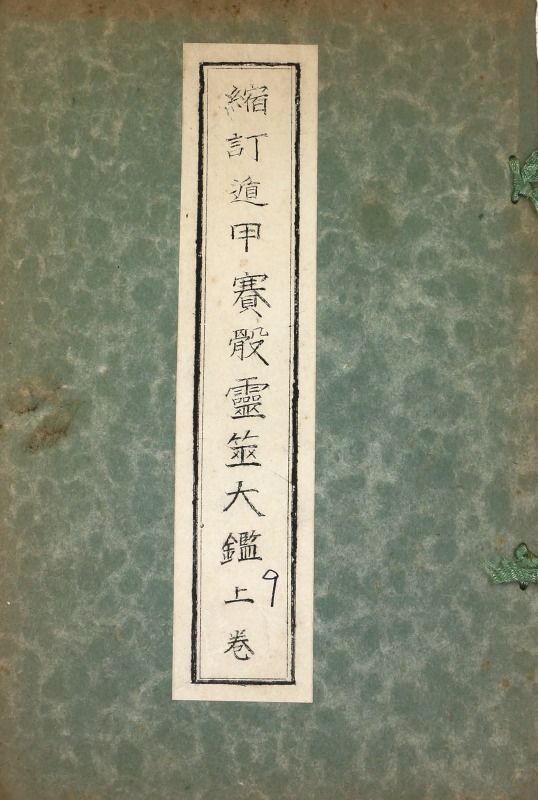 縮訂遁甲賽骰靈筮大鑑上巻
9